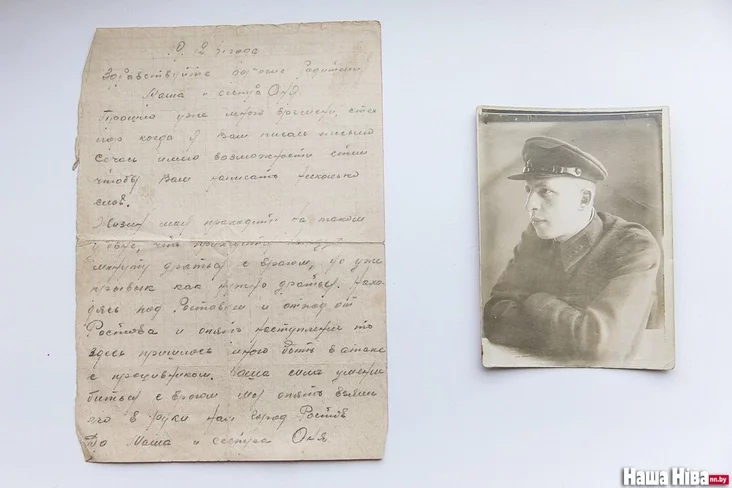 Здравствуйте дорогие радители
Маша и сестра Оня.
Прошло уже много времени, с тех
пор когда я Вам писал письмо
Сечас имею возможность
чтобы Вам написать несколько
слов.
Жизнь моя проходит в таком
духе, что приходится
минуту драться с врагом, но уже
привык как нужно драться. Нахо-
дясь под Ростовом и отход от
Ростова и опять наступление то
здесь пришлось много быть в атаке
с противником. Наша сила умеет
биться с врагом мы опять взяли
его в руки наш город Ростов
Да Маша и сестра Оня
Наша Ніва nn.by